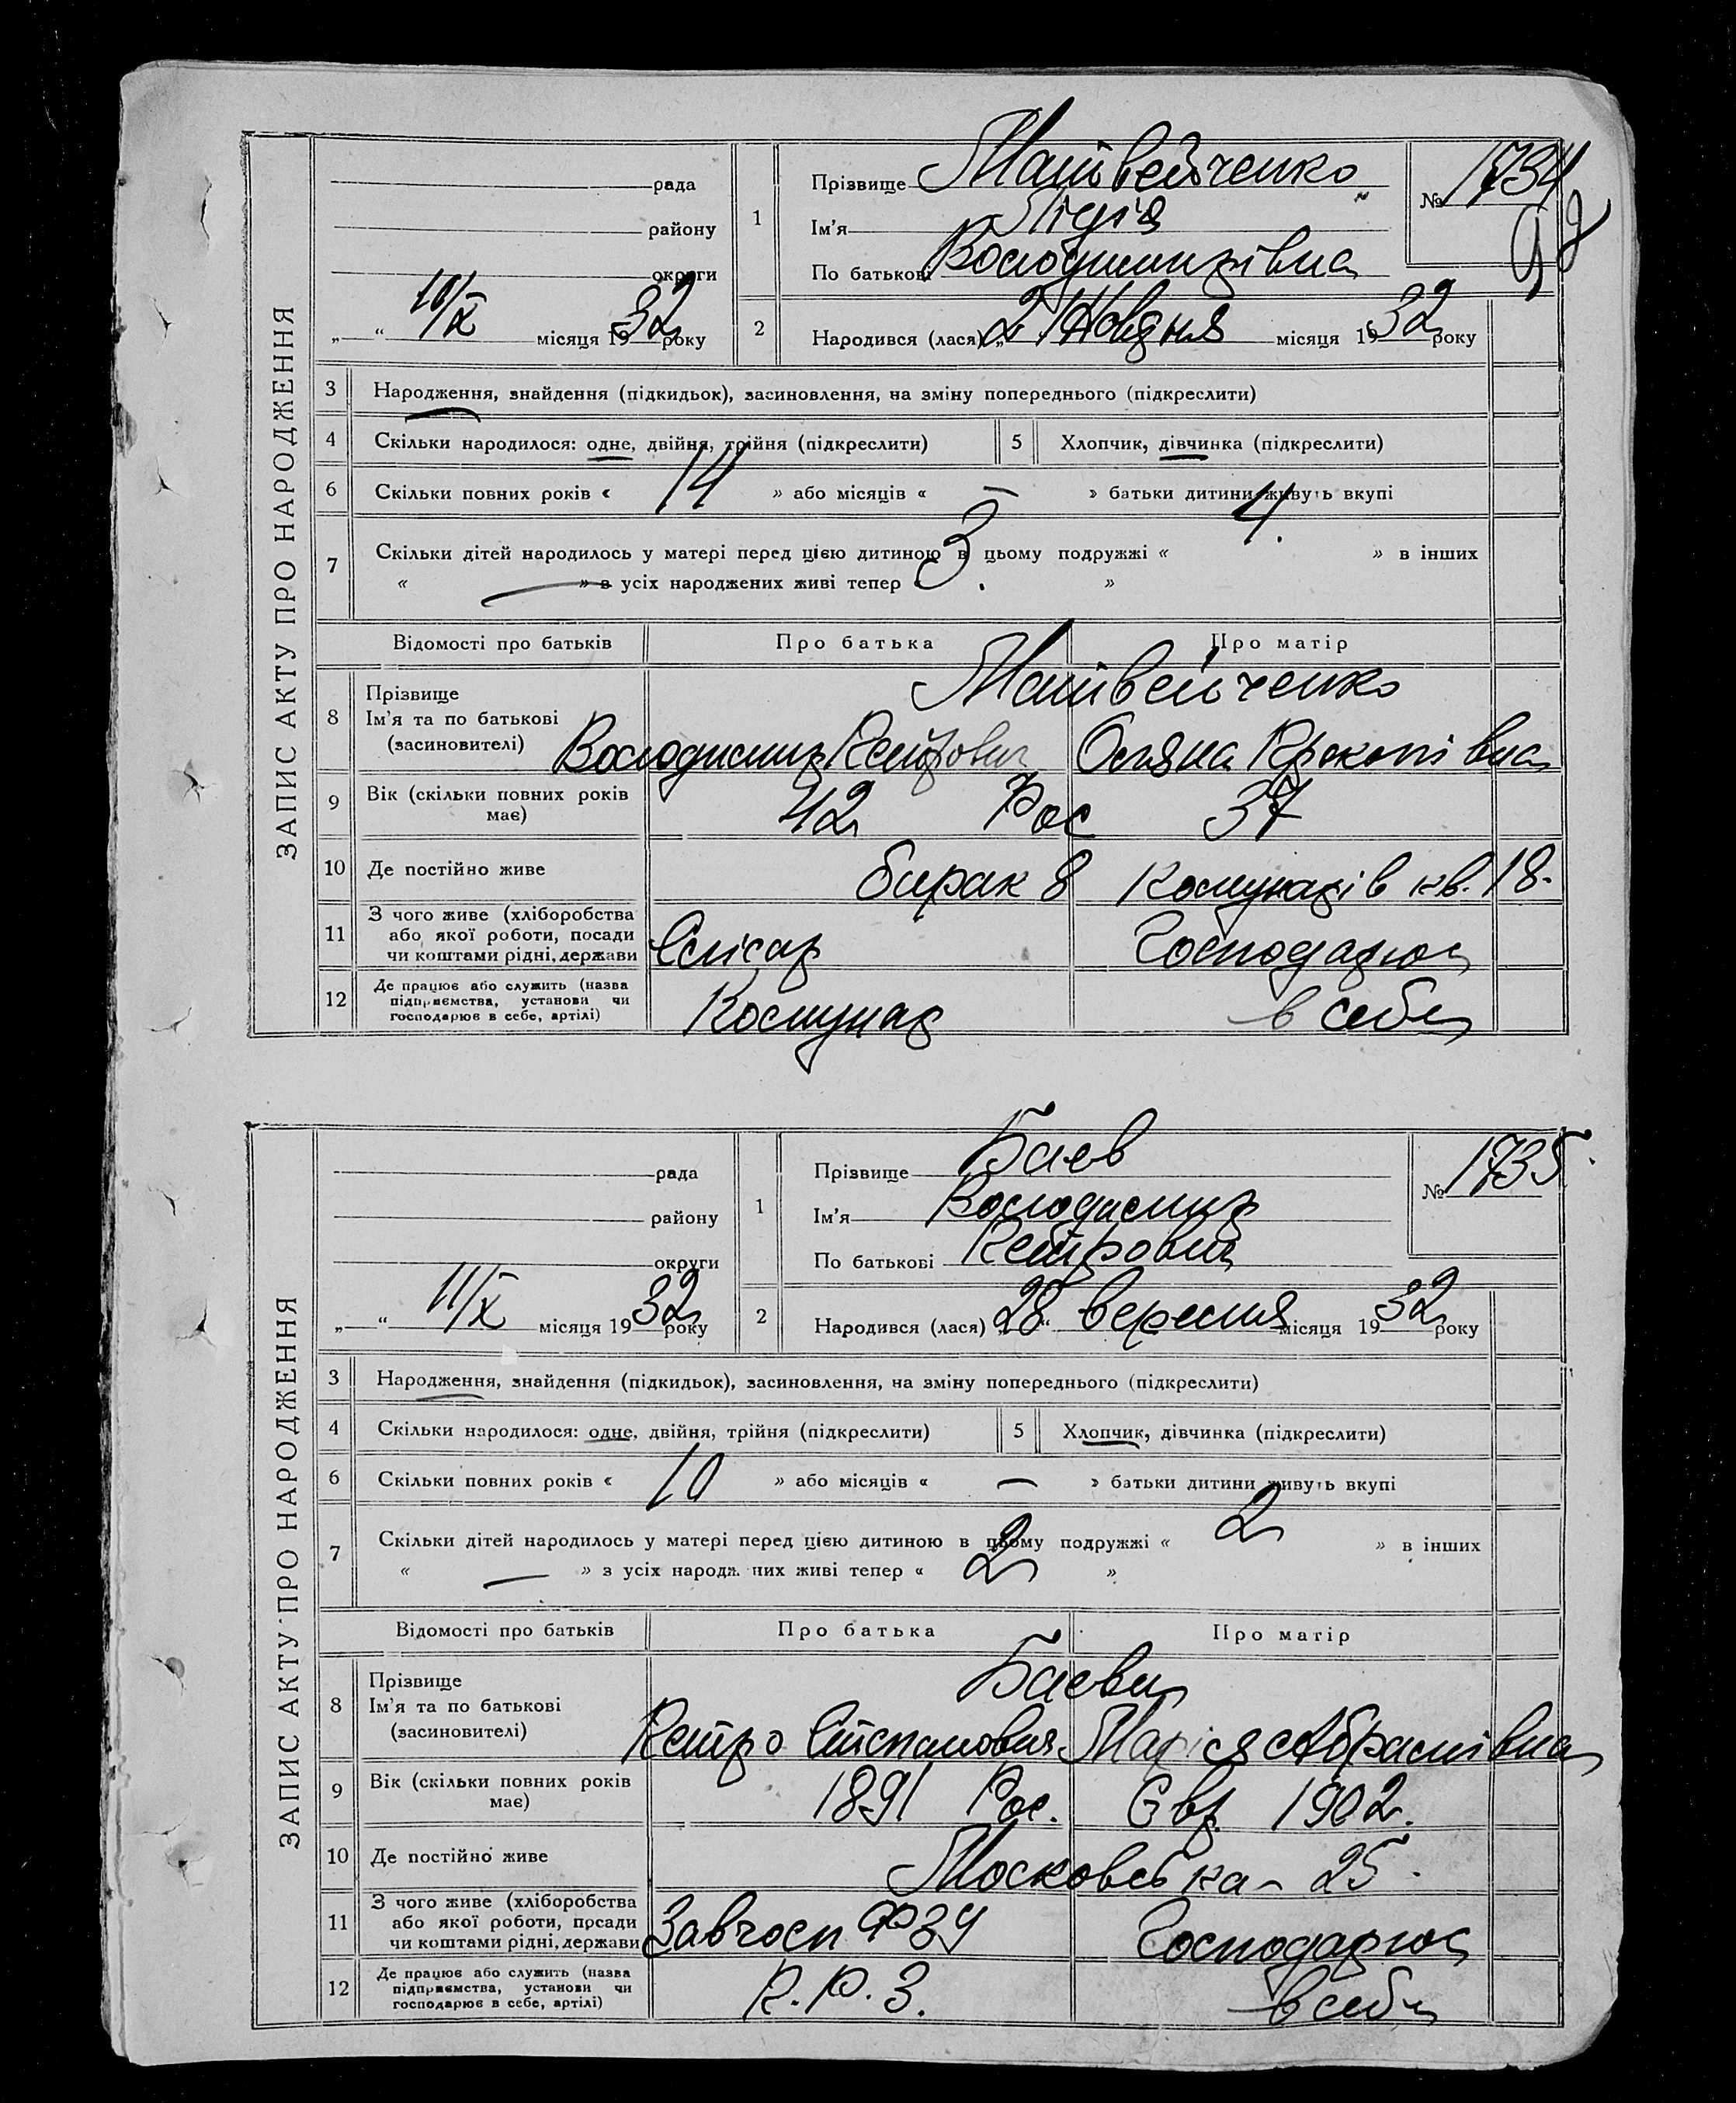 ЗАПИС АКТУ ПРО НАРОДЖЕННЯ
рада
району
округи
„ “ 10/X місяця 1932 року
1
Прізвище Матвейченко
Ім'я Лідія
По батькові Володимирівна
№ 1734
92
2
Народився (лася) „2“ Жовтня місяця 1932 року
3 Народження, знайдення (підкидьок), засиновлення, на зміну попереднього (підкреслити)
4 Скільки народилося: одне, двійня, трійня (підкреслити) 5 Хлопчик, дівчинка (підкреслити)
6 Скільки повних років « 14 » або місяців « — » батьки дитини живуть вкупі
7 Скільки дітей народилось у матері перед цією дитиною в цьому подружжі « 4. » в інших
« — » з усіх народжених живі тепер « 3. »
Відомості про батьків Про батька Про матір
8 Прізвище Матвейченко
Ім'я та по батькові
(засиновителі) Володимир Петрович Прокопівна
9 Вік (скільки повних років має) 42 Рос 37
10 Де постійно живе барак 8 Комунарів кв. 18.
11 З чого живе (хліборобства
або якої роботи, посади
чи коштами рідні, держави Слюсар Господарює
12 Де працює або служить (назва
підприємства, установи чи
господарює в себе, артілі) Комунар в себе
ЗАПИС АКТУ ПРО НАРОДЖЕННЯ
рада
району
округи
„ “ 11/X місяця 1932 року
1
Прізвище Баєв
Ім'я Володимир
По батькові Петрович
№ 1735.
2
Народився (лася) „28“ вересня місяця 1932 року
3 Народження, знайдення (підкидьок), засиновлення, на зміну попереднього (підкреслити)
4 Скільки народилося: одне, двійня, трійня (підкреслити) 5 Хлопчик, дівчинка (підкреслити)
6 Скільки повних років « 10 » або місяців « — » батьки дитини живуть вкупі
7 Скільки дітей народилось у матері перед цією дитиною в цьому подружжі « 2 » в інших
« — » з усіх народж них живі тепер « 2 »
Відомості про батьків Про батька Про матір
8 Прізвище Баєви
Ім'я та по батькові
(засиновителі) Петро Степанович Марія Абрамівна
9 Вік (скільки повних років має) 1891 Рос. Євр. 1902.
10 Де постійно живе Московська - 25.
11 З чого живе (хліборобства
або якої роботи, посади
чи коштами рідні, держави Завгосп ФЗУ Господарює
12 Де працює або служить (назва
підприємства, установи чи
господарює в себе, артілі) П.Р.З. в себе